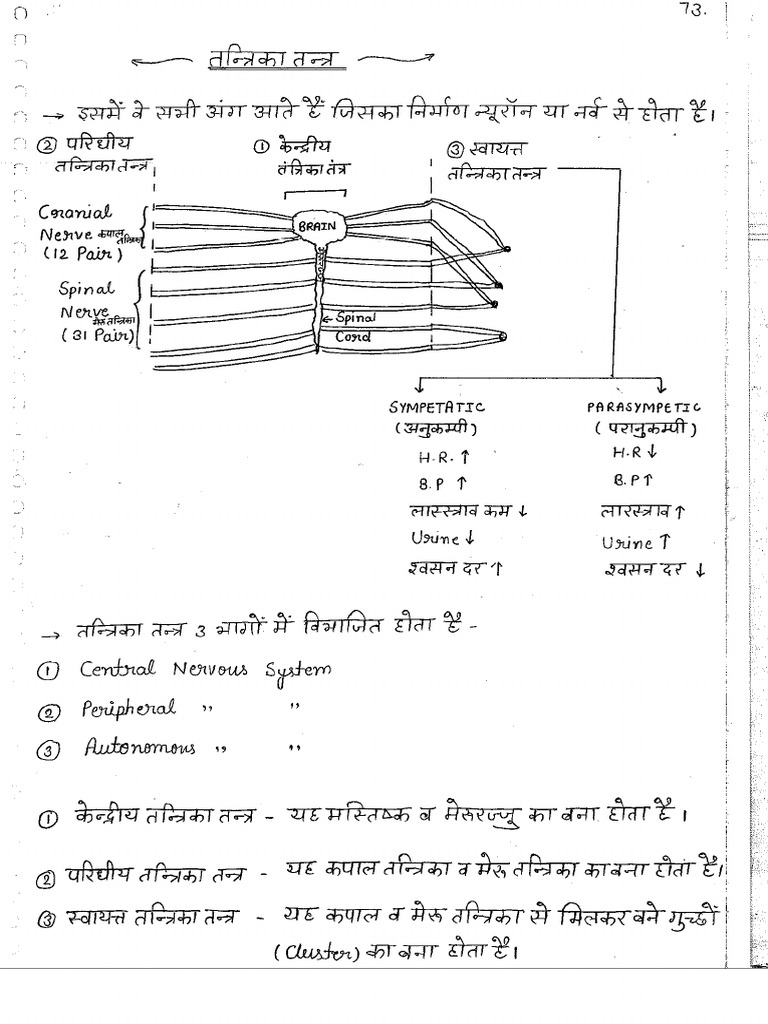 73.
तन्त्रिका तन्त्र
→ इसमें वे सभी अंग आते हैं जिसका निर्माण न्यूरॉन या नर्व से होता है।
② परिधीय
तन्त्रिका तन्त्र
① केन्द्रीय
तंत्रिका तंत्र
③ स्वायत्त
तन्त्रिका तन्त्र
Cranial
Nerve कपाल तन्त्रिका
(12 Pair)
BRAIN
Spinal
Nerve मेरु तन्त्रिका
(31 Pair)
← Spinal
Cord
SYMPETATIC
(अनुकम्पी)
H.R. ↑
B.P ↑
लास्स्त्राव कम ↓
Urine ↓
श्वसन दर ↑
PARASYMPETIC
(परानुकम्पी)
H.R ↓
B.P ↑
लारस्त्राव ↑
Urine ↑
श्वसन दर ↓
→ तन्त्रिका तन्त्र 3 भागों में विभाजित होता है -
① Central Nervous System
② Peripheral " "
③ Autonomous " "
① केन्द्रीय तन्त्रिका तन्त्र - यह मस्तिष्क व मेरुरज्जू का बना होता है।
② परिधीय तन्त्रिका तन्त्र - यह कपाल तन्त्रिका व मेरु तन्त्रिका का बना होता है।
③ स्वायत्त तन्त्रिका तन्त्र - यह कपाल व मेरु तन्त्रिका से मिलकर बने गुच्छों
(Cluster) का बना होता है।